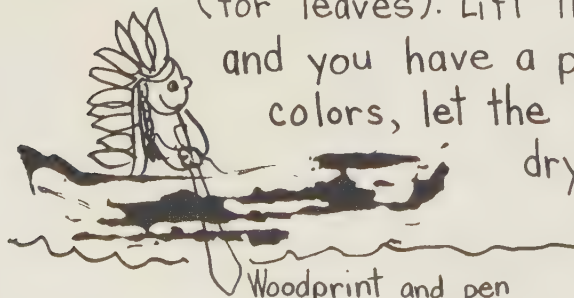 (for leaves). Lift
and you have a p
colors, let the
dry
Woodprint and pen